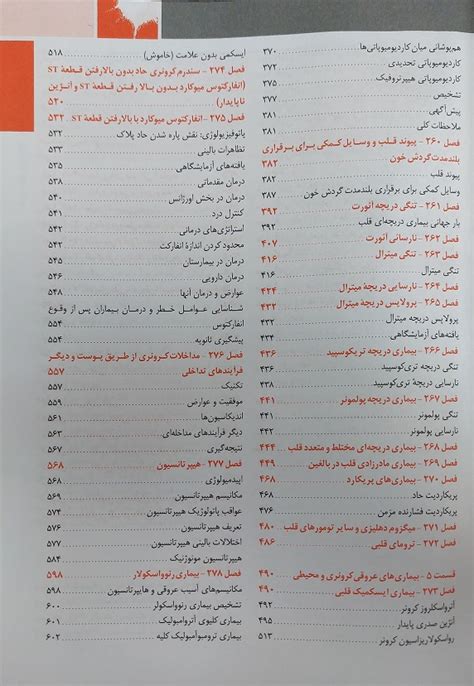 هم‌پوشانی میان کاردیومیوپاتی‌ها ۳۷۰
کاردیومیوپاتی تحدیدی ۳۷۲
کاردیومیوپاتی هیپرتروفیک ۳۷۵
تشخیص ۳۷۷
پیش‌آگهی ۳۸۱
ملاحظات کلی ۳۸۱
فصل ۲۶۰ - پیوند قلب و وسایل کمکی برای برقراری
بلندمدت گردش خون ۳۸۲
پیوند قلب ۳۸۲
وسایل کمکی برای برقراری بلندمدت گردش خون ۳۸۷
فصل ۲۶۱ - تنگی دریچه آئورت ۳۹۲
بار جهانی بیماری دریچه‌ای قلب ۳۹۲
فصل ۲۶۲ - نارسایی آئورت ۴۰۷
فصل ۲۶۳ - تنگی میترال ۴۱۶
تنگی میترال ۴۱۶
فصل ۲۶۴ - نارسایی دریچهٔ میترال ۴۲۴
فصل ۲۶۵ - پرولاپس دریچه میترال ۴۳۲
پرولاپس دریچه میترال ۴۳۲
یافته‌های آزمایشگاهی ۴۳۳
فصل ۲۶۶ - بیماری دریچه تریکوسپید ۴۳۶
تنگی دریچه تری‌کوسپید ۴۳۶
نارسایی دریچه تری‌کوسپید ۴۳۸
فصل ۲۶۷ - بیماری دریچه پولمونر ۴۴۱
تنگی پولمونر ۴۴۱
نارسایی پولمونر ۴۴۲
فصل ۲۶۸ - بیماری دریچه‌ای مختلط و متعدد قلب ۴۴۴
فصل ۲۶۹ - بیماری مادرزادی قلب در بالغین ۴۴۹
فصل ۲۷۰ - بیماری‌های پریکارد ۴۶۸
پریکاردیت حاد ۴۶۸
پریکاردیت فشارنده مزمن ۴۷۶
فصل ۲۷۱ - میگزوم دهلیزی و سایر تومورهای قلب ۴۸۰
فصل ۲۷۲ - ترومای قلبی ۴۸۶
قسمت ۵ - بیماری‌های عروقی کرونری و محیطی ۴۹۰
فصل ۲۷۳ - بیماری ایسکمیک قلبی ۴۹۰
آترواسکلروز کرونر ۴۹۲
آنژین صدری پایدار ۴۹۵
رواسکولاریزاسیون کرونر ۵۱۳
ایسکمی بدون علامت (خاموش) ۵۱۸
فصل ۲۷۴ - سندرم کرونری حاد بدون بالارفتن قطعهٔ ST
(انفارکتوس میوکارد بدون بالا رفتن قطعهٔ ST و آنژین
ناپایدار) ۵۲۰
فصل ۲۷۵ - انفارکتوس میوکارد با بالارفتن قطعهٔ ST ۵۳۲
پاتوفیزیولوژی: نقش پاره شدن حاد پلاک ۵۳۲
تظاهرات بالینی ۵۳۳
یافته‌های آزمایشگاهی ۵۳۵
درمان مقدماتی ۵۳۸
درمان در بخش اورژانس ۵۴۰
کنترل درد ۵۴۱
استراتژی‌های درمانی ۵۴۲
محدود کردن اندازهٔ انفارکت ۵۴۲
درمان در بیمارستان ۵۴۵
درمان دارویی ۵۴۶
عوارض و درمان آنها ۵۴۸
شناسایی عوامل خطر و درمان بیماران پس از وقوع
انفارکتوس ۵۵۴
پیشگیری ثانویه ۵۵۴
فصل ۲۷۶ - مداخلات کرونری از طریق پوست و دیگر
فرآیندهای تداخلی ۵۵۷
تکنیک ۵۵۷
موفقیت و عوارض ۵۵۹
اندیکاسیون‌ها ۵۶۱
دیگر فرآیندهای مداخله‌ای ۵۶۳
نتیجه‌گیری ۵۶۷
فصل ۲۷۷ - هیپرتانسیون ۵۶۸
اپیدمیولوژی ۵۶۸
مکانیسم هیپرتانسیون ۵۶۹
عواقب پاتولوژیک هیپرتانسیون ۵۷۴
تعریف هیپرتانسیون ۵۷۶
اختلالات بالینی هیپرتانسیون ۵۷۷
هیپرتانسیون مونوژنیک ۵۸۴
فصل ۲۷۸ - بیماری رنوواسکولار ۵۹۸
مکانیسم‌های آسیب عروقی و هایپرتانسیون ۵۹۸
تشخیص بیماری رنوواسکولار ۶۰۰
بیماری کلیوی آتروآمبولیک ۶۰۱
بیماری ترومبوآمبولیک کلیه ۶۰۲